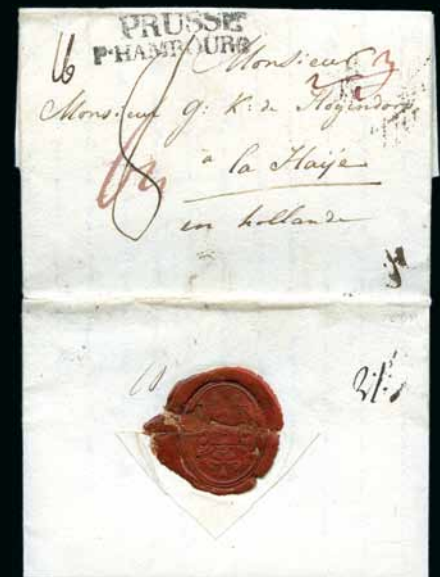 PRUSSE
Pr HAMBOURG
16
Monsieur
Monsieur G: K: de Hogendorp
8
à la Haÿe
en hollande